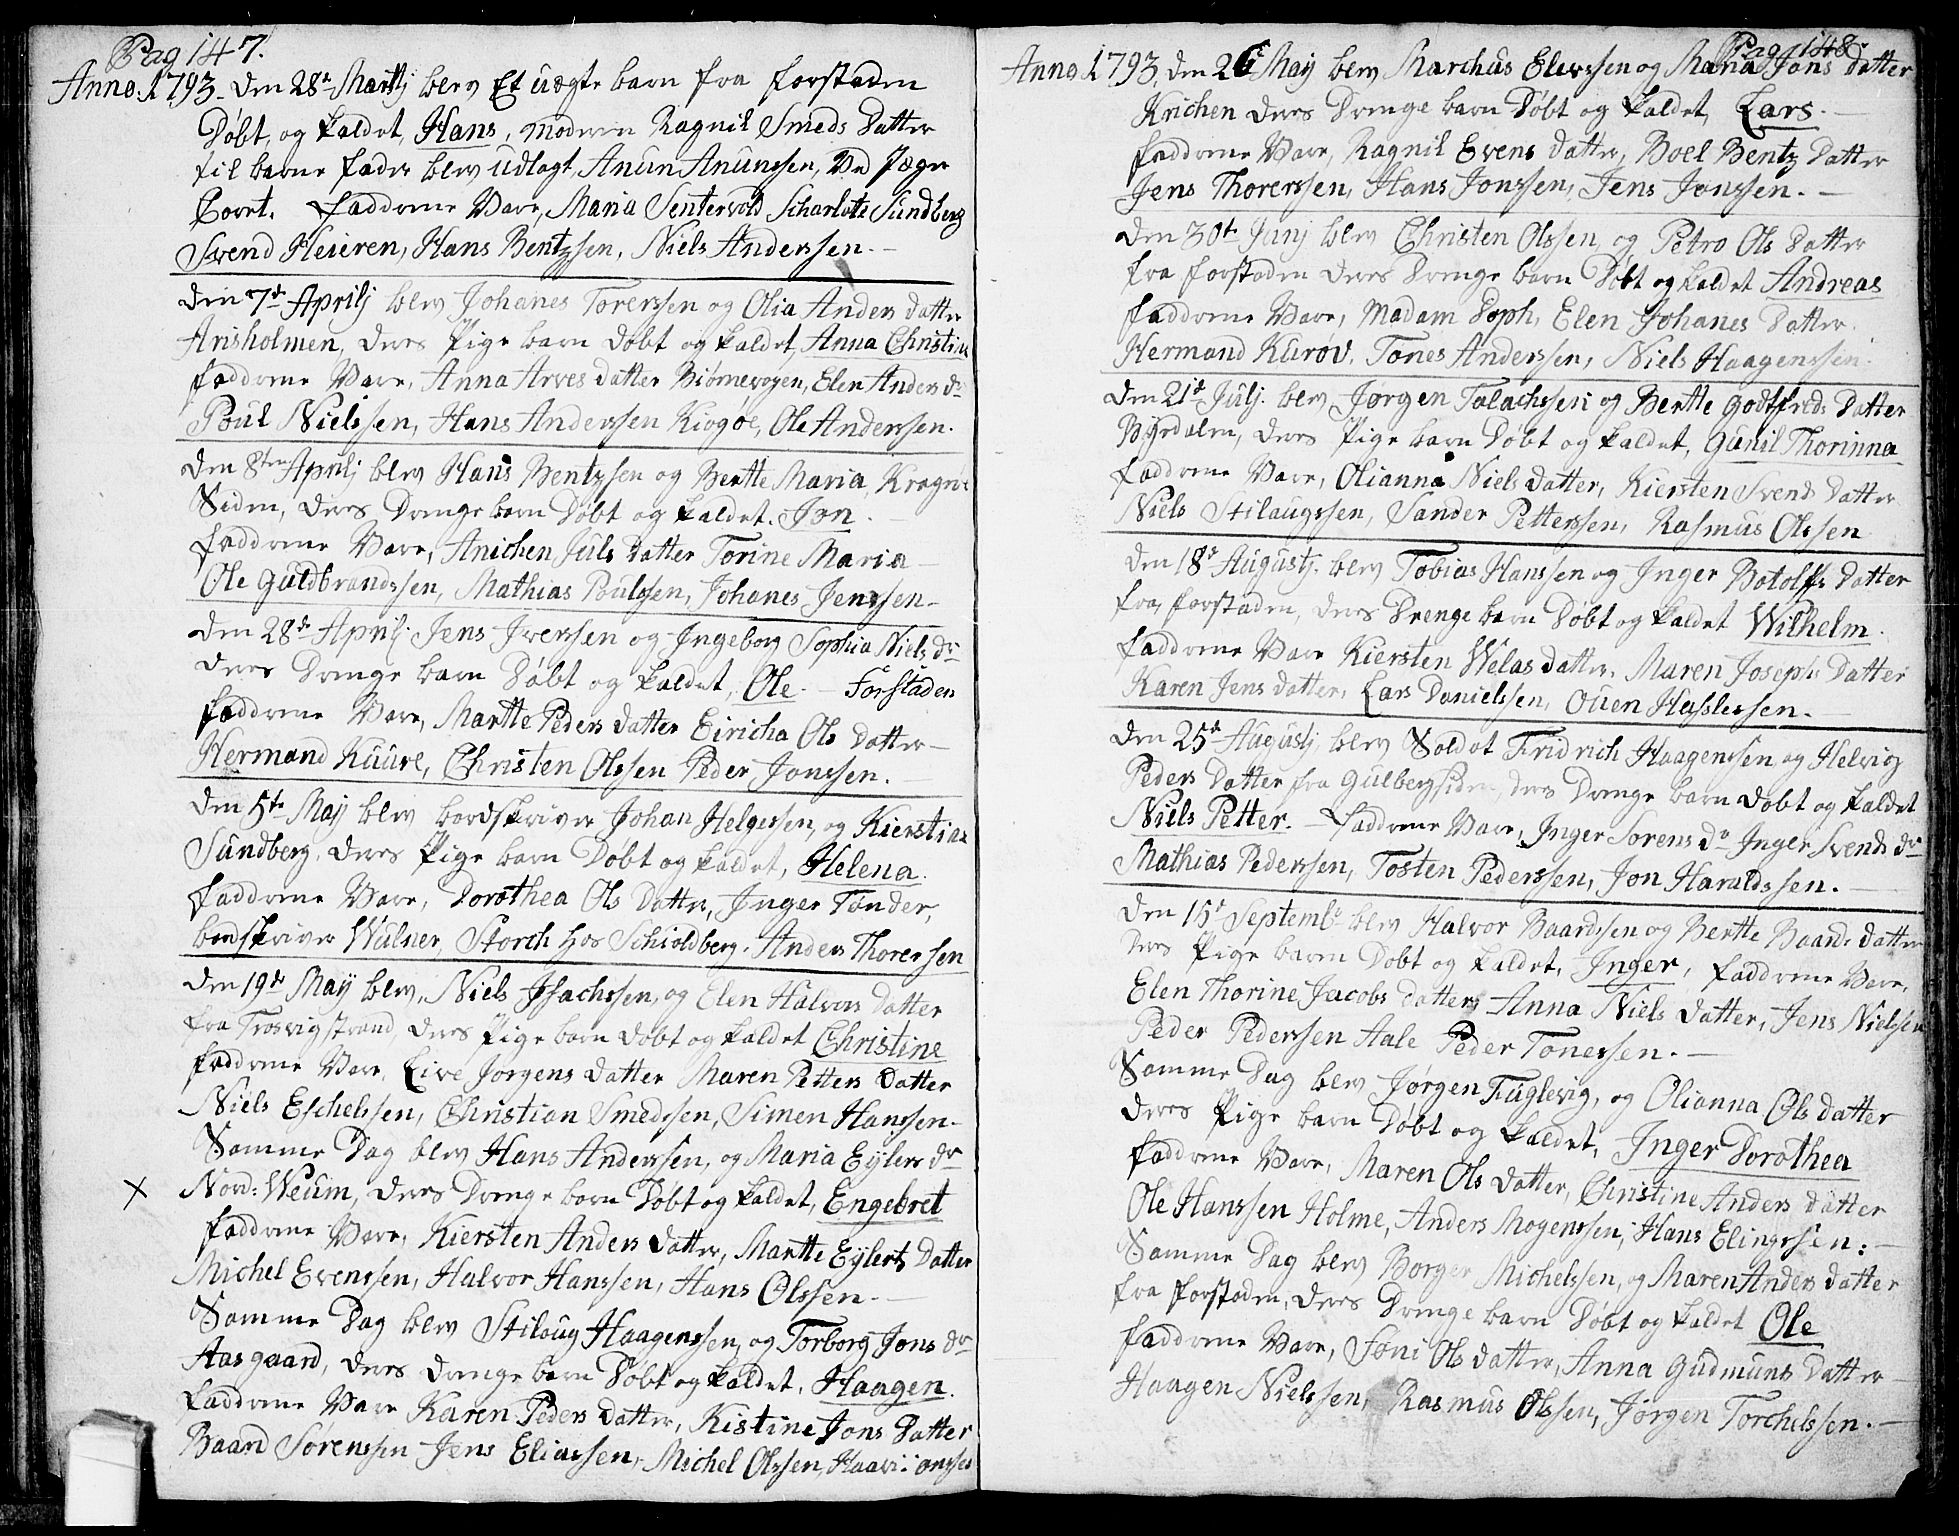 Pag 147.
Anno. 1793. den 28de Martij blev Et uægte barn fra forstaden
Døbt, og kaldet, Hans, moderen Ragnil Smeds Datter
til barne fader blev udlagt, Anun Anunssen, Ved Jæger
Coret. fadderne Vare, Maria Sentervold Scharlote Sundberg
Svend Heieren, Hans Bentzsen, Niels Anderssen.
Den 7de Aprilj blev Johanes Torerssen og Olia Anders datter
Arisholmen, deres Pige barn døbt og kaldet, Anna Christine
fadderne Vare, Anna Arves datter Biørnevogen, Elen Anders dr
Poul Nielssen, Hans Anderssen Kiogøe, Ole Anderssen.
Den 8ten Aprilj blev Hans Bentzsen og Bertte Maria, Kragrøe
Siden, deres Drenge barn Døbt og kaldet. Jon.
fadderne Vare, Anichen Juls datter Torine Maria
Ole Guldbrandssen, Mathias Poulssen, Johanes Jenssen.
Den 28de Aprilj Jens Iverssen og Ingeborg Sophia Niels dr
deres Drenge barn Døbt og kaldet, Ole. - Forstaden
fadderne Vare, Martte Peders datter Eiricha Ols datter
Hermand Kuure, Christen Olssen Peder Jonssen.
Den 5te May blev bordskriver Johan Helgessen, og Kierstine
Sundberg, deres Pige barn Døbt og kaldet, Helena.
fadderne Vare, Dorothea Ols datter, Inger Tønder,
bordskriver Wulner, Storch hos Schioldberg. Anders Thorerssen
Den 19de May blev, Niels Isachssen, og Elen Halvors datter
fra Trosvigstrand, deres Pige barn døbt og kaldet Christine
fadderne Vare, Live Jørgens datter Maren Petters Datter
Niels Eschelssen, Christian Smedssen, Simen Hanssen.
Samme Dag blev Hans Anderssen, og Maria Eylers dr
x Nord: Weum, deres Drenge barn Døbt og kaldet, Engebret
fadderne Vare, Kiersten Anders datter, Martte Eylerts Datter
Michel Evenssen, Halvor Hanssen, Hans Olssen.
Samme Dag blev Stiloug Haagenssen, og Torborg Jons dr
Aasgaard, deres drenge barn Døbt og kaldet, Haagen.
fadderne Vare Karen Peders datter, Kistine Jons Datter
Baard Sørenssen Jens Eliassen, Michel Olssen,
Pag 148.
Anno. 1793, den 26 May blev Marchus Elerssen og Maria Jons datter
Krichen deres Drenge barn Døbt og kaldet, Lars.
fadderne Vare, Ragnil Evens datter, Boel Bentz Datter
Jens Thorerssen, Hans Jonssen, Jens Jonssen.
Den 30te Junj blev Christen Olssen, og Petro Ols Datter
fra forstaden deres Drenge barn Døbt og kaldet Andreas
fadderne Vare, Madam Soph, Elen Johanes Datter.
Hermand Kurov, Tones Anderssen, Niels Haagenssen.
Den 21de Julj. blev Jørgen Talachssen og Bertte Godtfreds Datter
Byrdalen, deres Pige barn Døbt og kaldet, Gunil Thorinna
fadderne Vare, Olianna Niels datter, Kiersten Svends Datter
Niels Stilaugssen, Sander Petterssen, Rasmus Olssen
Den 18de Augustj. blev Tobias Hanssen og Inger Botolffs Datter
fra forstaden, deres Drenge barn Døbt og kaldet Wilhelm.
fadderne Vare Kiersten Welas datter. Maren Josephs Datter
Karen Jens datter, Lars Danielssen, Ouen Hasslessen.
Den 25de Augustj blev Soldat Fridrich Haagenssen og Helvig
Peders Datter fra Gulbergsiden, deres Drenge barn døbt og kaldet
Niels Petter. - fadderne Vare, Inger Sørens dr Inger Svends dr
Mathias Pederssen, Tosten Pederssen, Jon Haraldssen.
Den 15de Septembr blev Halvor Baardssen og Bertte Baards datter
deres Pige barn Døbt og kaldet, Inger, fadderne Vare,
Elen Thorine Jacobs datter, Anna Niels datter, Jens Nielssen
Peder Pederssen Aale Peder Tonessen.
Samme Dag blev Jørgen Fuglevig, og Olianna Ols datter
deres Pige barn Døbt og kaldet, Inger Dorothea
fadderne Vare, Maren Ols datter, Christine Anders datter
Ole Hanssen Holme, Anders Mogenssen, Hans Elingssen:
Samme Dag blev Borger Michelssen, og Maren Anders datter
fra forstaden, deres Drenge barn Døbt og kaldet Ole
fadderne Vare, Søni Ols datter, Anna Gudmuns Datter
Haagen Nielssen, Rasmus Olssen, Jørgen Torchelssen.